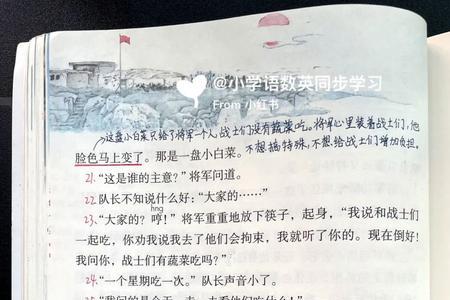 @小学语数英同步学习
From 小红书
这盘小白菜只给了将军一个人,战士们没有蔬菜吃。将军心里装着战士们,他
不想搞特殊,不想给战士们增加负担。
脸色马上变了。那是一盘小白菜。
21.“这是谁的主意?”将军问道。
22.队长不知说什么好:“大家的……”
hng
23.“大家的?哼!”将军重重地放下筷子,起身,“我说和战士们
一起吃,你劝我说我去了他们会拘束,我就听了你的。现在倒好!
我问你,战士们有蔬菜吃吗?”
24.“一个星期吃一次。”队长声音小了。